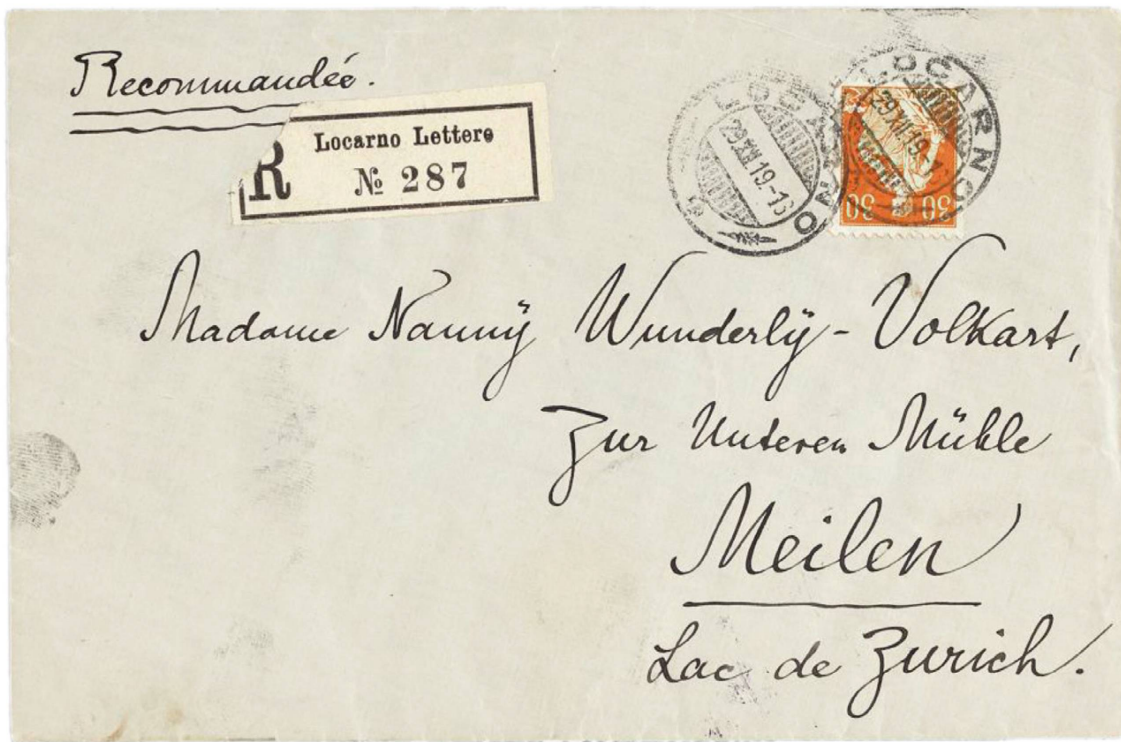 Recommandée.
R
Locarno Lettere
№ 287
LOCARNO
29.XII.19.-16
LOCARNO
30 30
Madame Nannÿ Wunderlÿ-Volkart,
Zur Unteren Mühle
Meilen
Lac de Zurich.